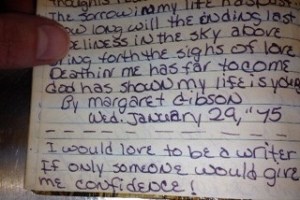 The sorrow in my life has past
how long will the ending last
liness in the sky above
bring forth the sighs of love
Death in me has far to come
God has shown my life is
By Margaret Gibson
Wed. January 29, "75
I would love to be a writer
If only someone would give
me confidence!